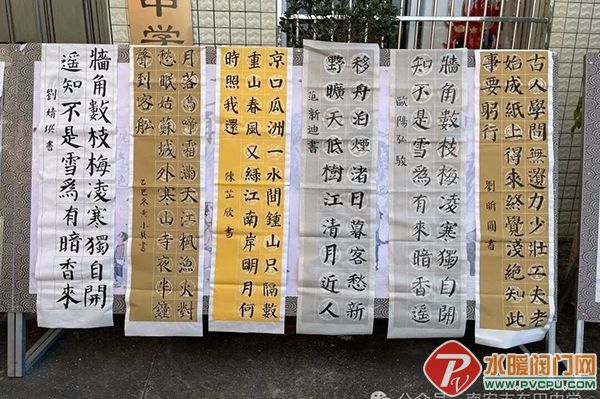 中学
古人學問無遺力少壯工夫老
始成紙上得來終覺淺絕知此
事要躬行
劉昕圓書
牆角數枝梅凌寒獨自開
知不是雪為有暗香
歐陽弘駿
移舟泊煙渚日暮客愁新
野曠天低樹江清月近人
范新迪書
京口瓜洲一水間鍾山只隔數
重山春風又綠江南岸明月何
時照我還
陳芷欣書
月落烏啼霜滿天江楓漁火對
愁眠姑蘇城外寒山寺夜半鐘
聲到客船
乙巳冬黃小書
牆角數枝梅凌寒獨自開
遥知不是雪為有暗香來
劉婧書
公众号
水暖阀门网
WWW.PVCPU.COM